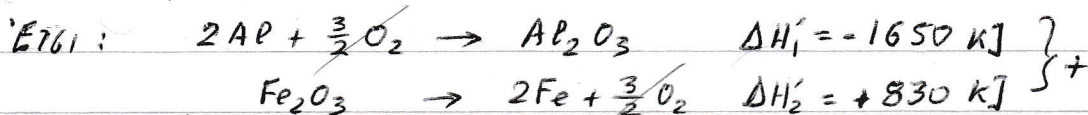 Έτσι: 2Al + 3/2 O₂ → Al₂O₃ ΔH₁' = -1650 KJ
Fe₂O₃ → 2Fe + 3/2 O₂ ΔH₂' = +830 KJ } +